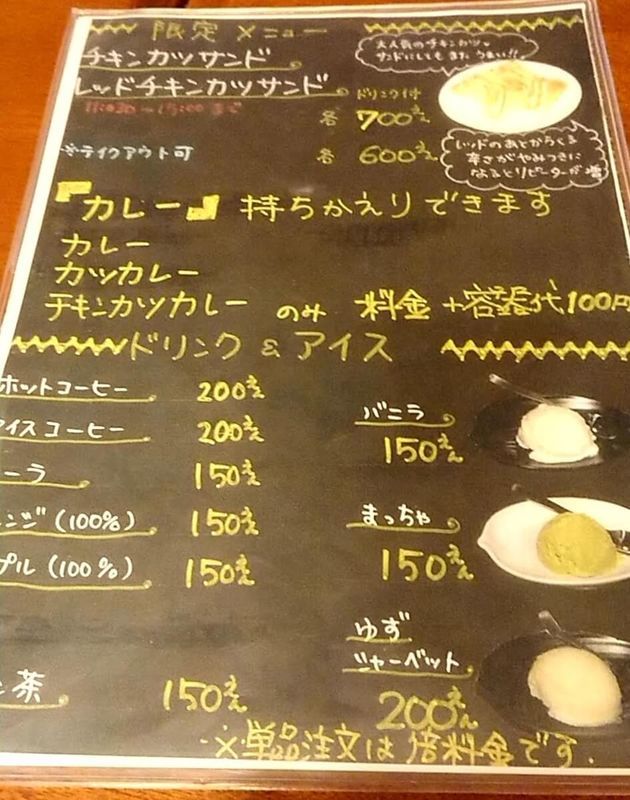 限定メニュー
チキンカツサンド
レッドチキンカツサンド
大人気のチキンカツ
サンドにしてもまたうまい!!
11:030～15:00まで
ドリンク付
各 700えん
※テイクアウト可
各 600えん
レッドのあとからくる
辛さがやみつきに
なるとリピーターが増
『カレー』持ちかえりできます
カレー
カツカレー
チキンカツカレー のみ 料金+容器代100円
ドリンク&アイス
ホットコーヒー 200えん
アイスコーヒー 200えん
ーラ 150えん
ンジ(100%) 150えん
プル(100%) 150えん
茶 150えん
バニラ
150えん
まっちゃ
150えん
ゆず
シャーベット
200えん
※単品注文は倍料金です.